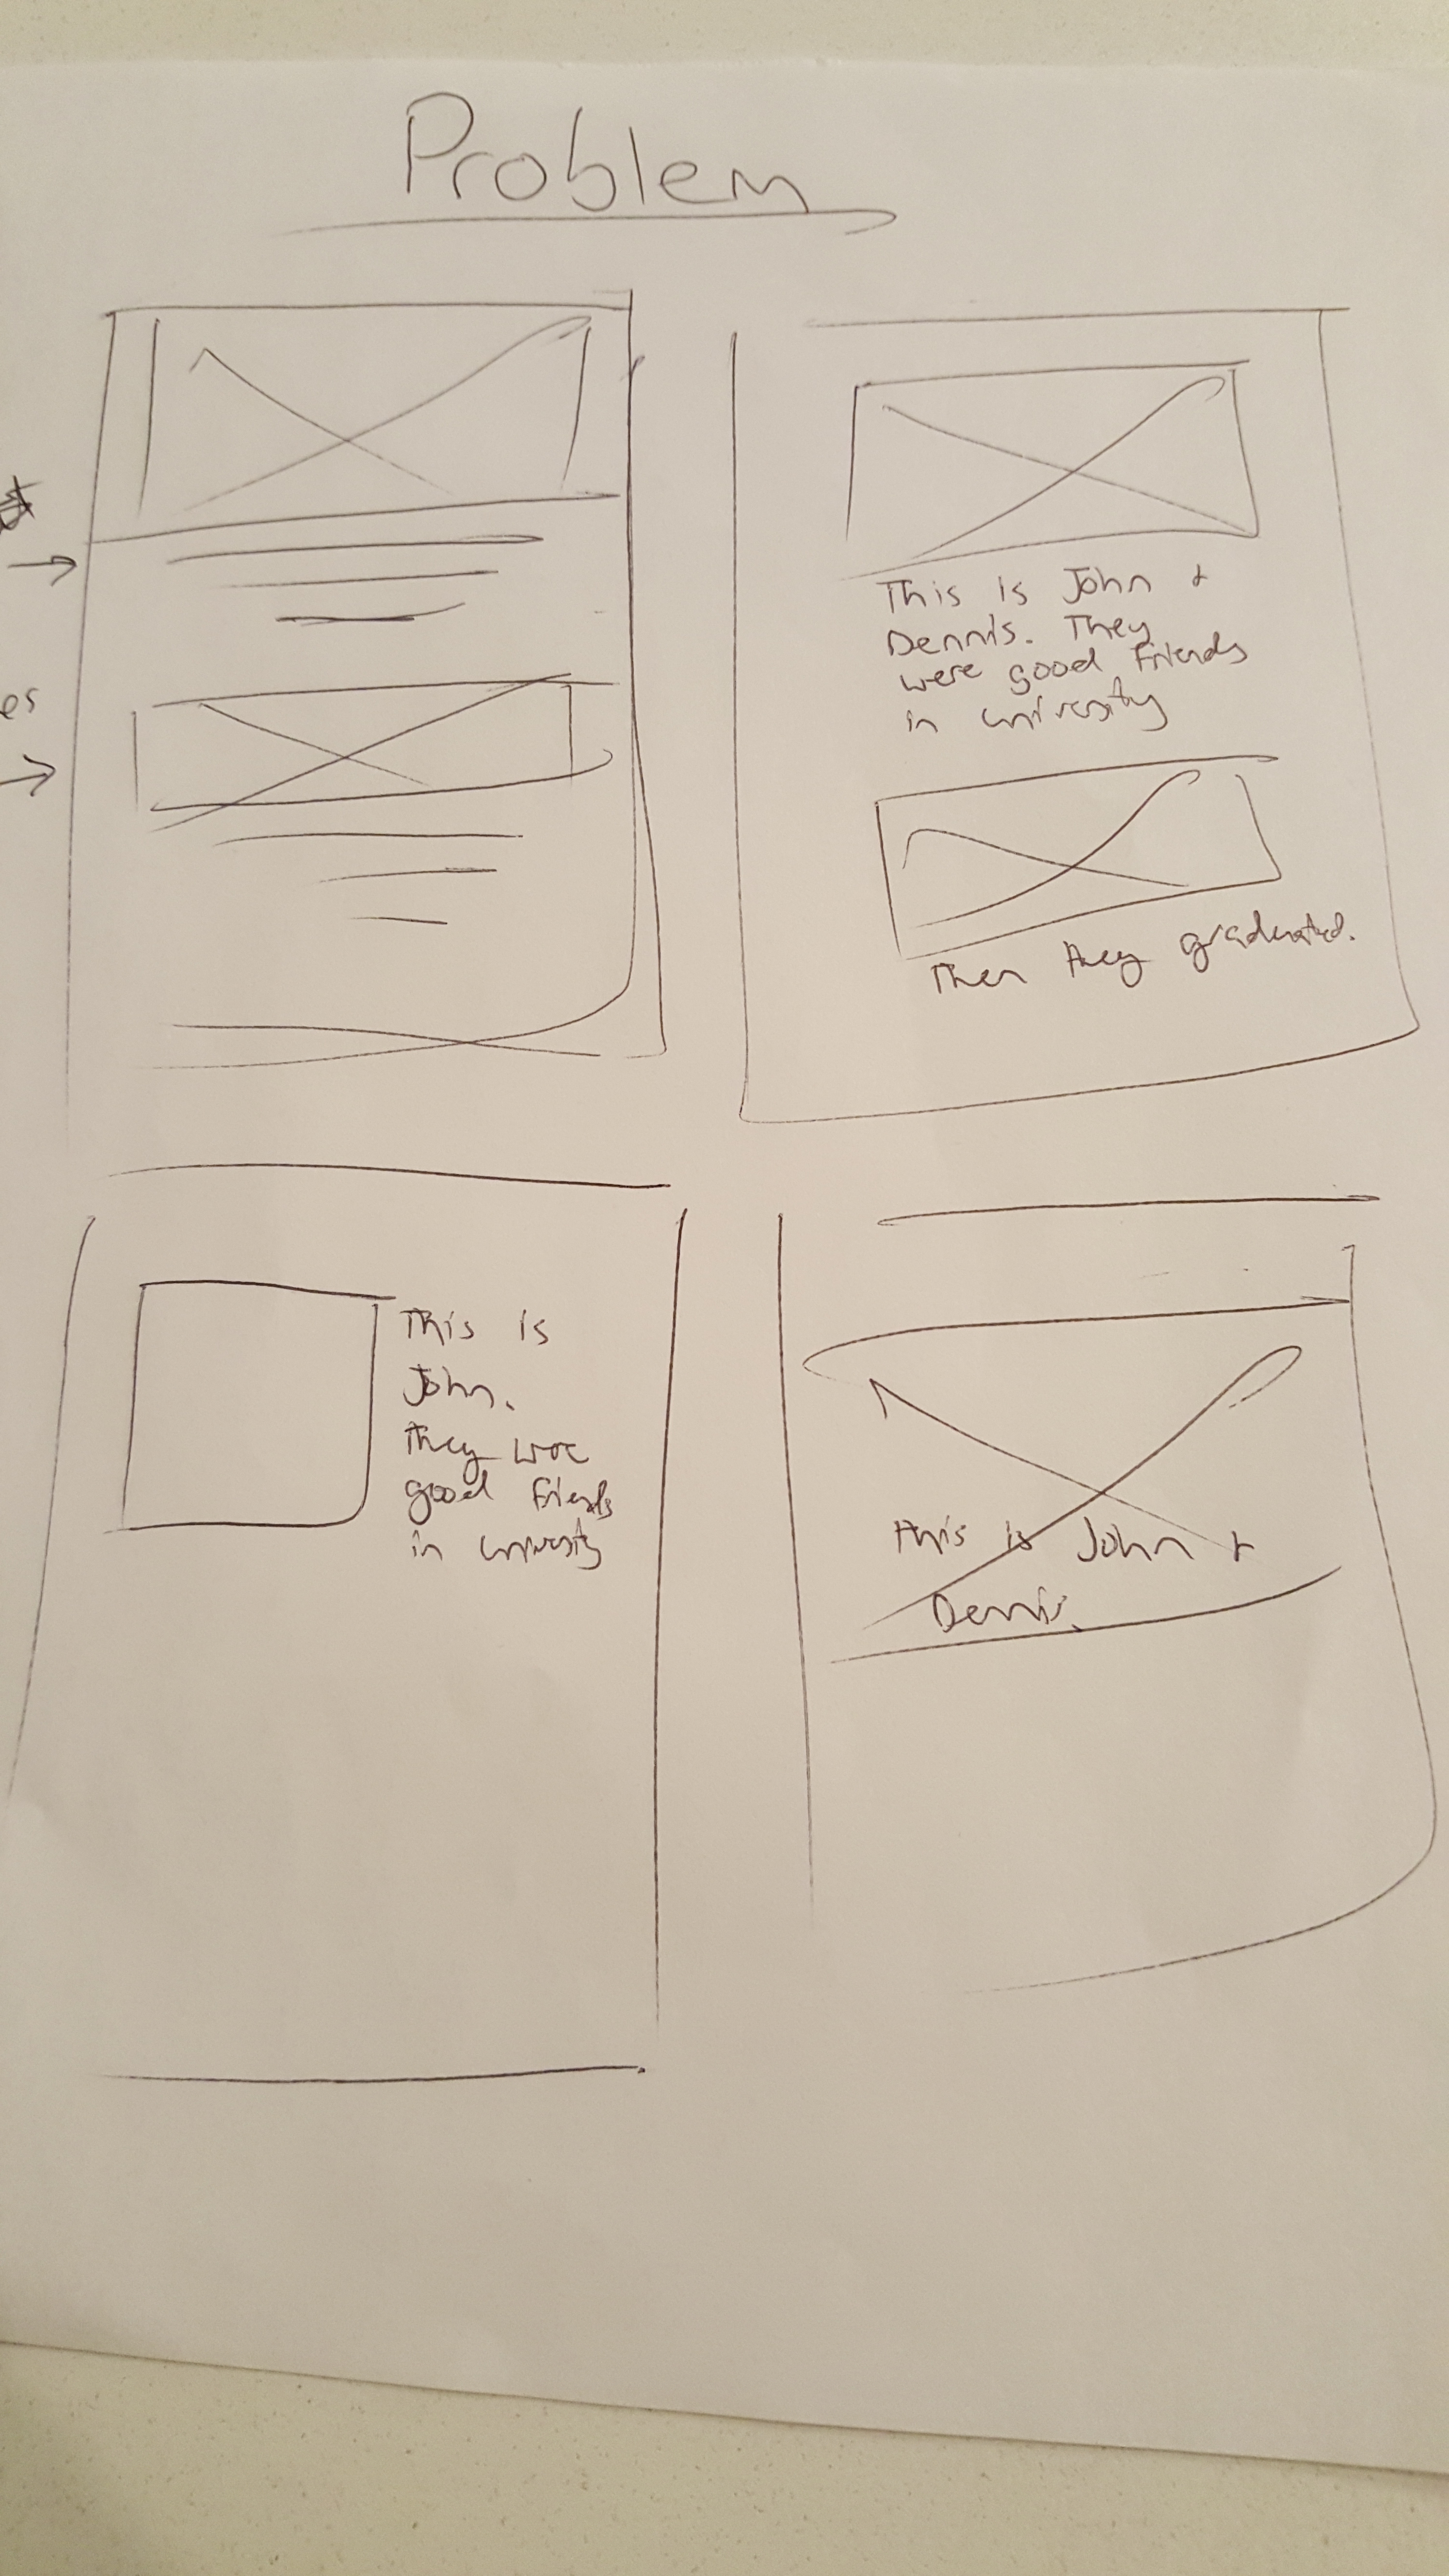 Problem
es
This is John &
Dennis. They
were good friends
in university
Then they graduated.
This is
John.
They were
good friends
in university
This is John &
Dennis.